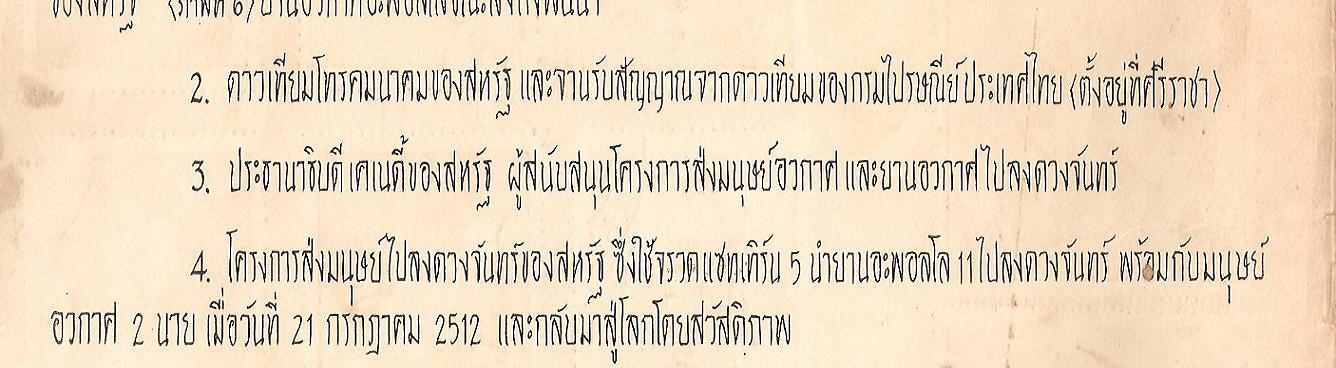 ของสหรัฐ (ภาพที่ ๖) ยานอวกาศอะพอลโล
2. ดาวเทียมโทรคมนาคมของสหรัฐ และจานรับสัญญาณจากดาวเทียมของกรมไปรษณีย์ประเทศไทย (ตั้งอยู่ที่ศรีราชา)
3. ประธานาธิบดีเคเนดี้ของสหรัฐ ผู้สนับสนุนโครงการส่งมนุษย์อวกาศ และยานอวกาศไปลงดวงจันทร์
4. โครงการส่งมนุษย์ไปลงดวงจันทร์ของสหรัฐ ซึ่งใช้จรวดแซทเทิร์น 5 นำยานอะพอลโล 11 ไปลงดวงจันทร์ พร้อมกับมนุษย์
อวกาศ 2 นาย เมื่อวันที่ 21 กรกฎาคม 2512 และกลับมาสู่โลกโดยสวัสดิภาพ